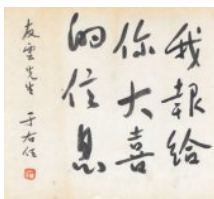 我報給
你大喜
的信息
友雲先生 于右任